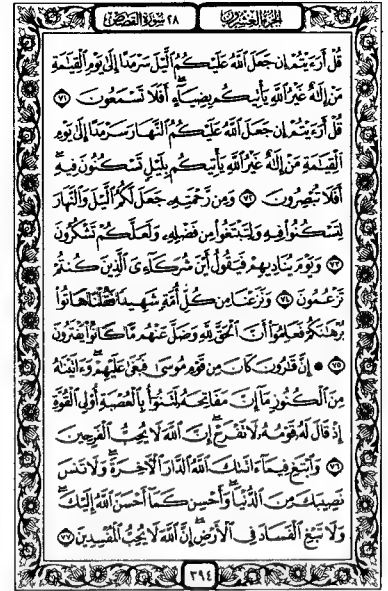 الجزء العشرون ٢٨ سورة القصص
قُلْ أَرَءَيْتُمْ إِن جَعَلَ ٱللَّهُ عَلَيْكُمُ ٱلَّيْلَ سَرْمَدًا إِلَىٰ يَوْمِ ٱلْقِيَٰمَةِ
مَنْ إِلَٰهٌ غَيْرُ ٱللَّهِ يَأْتِيكُم بِضِيَآءٍ أَفَلَا تَسْمَعُونَ ٧١
قُلْ أَرَءَيْتُمْ إِن جَعَلَ ٱللَّهُ عَلَيْكُمُ ٱلنَّهَارَ سَرْمَدًا إِلَىٰ يَوْمِ
ٱلْقِيَٰمَةِ مَنْ إِلَٰهٌ غَيْرُ ٱللَّهِ يَأْتِيكُم بِلَيْلٍ تَسْكُنُونَ فِيهِ
أَفَلَا تُبْصِرُونَ ٧٢ وَمِن رَّحْمَتِهِۦ جَعَلَ لَكُمُ ٱلَّيْلَ وَٱلنَّهَارَ
لِتَسْكُنُوا۟ فِيهِ وَلِتَبْتَغُوا۟ مِن فَضْلِهِۦ وَلَعَلَّكُمْ تَشْكُرُونَ
٧٣ وَيَوْمَ يُنَادِيهِمْ فَيَقُولُ أَيْنَ شُرَكَآءِىَ ٱلَّذِينَ كُنتُمْ
تَزْعُمُونَ ٧٤ وَنَزَعْنَا مِن كُلِّ أُمَّةٍ شَهِيدًا فَقُلْنَا هَاتُوا۟
بُرْهَٰنَكُمْ فَعَلِمُوٓا۟ أَنَّ ٱلْحَقَّ لِلَّهِ وَضَلَّ عَنْهُم مَّا كَانُوا۟ يَفْتَرُونَ
٧٥ ۞ إِنَّ قَٰرُونَ كَانَ مِن قَوْمِ مُوسَىٰ فَبَغَىٰ عَلَيْهِمْ وَءَاتَيْنَٰهُ
مِنَ ٱلْكُنُوزِ مَآ إِنَّ مَفَاتِحَهُۥ لَتَنُوٓأُ بِٱلْعُصْبَةِ أُو۟لِى ٱلْقُوَّةِ
إِذْ قَالَ لَهُۥ قَوْمُهُۥ لَا تَفْرَحْ إِنَّ ٱللَّهَ لَا يُحِبُّ ٱلْفَرِحِينَ
٧٦ وَٱبْتَغِ فِيمَآ ءَاتَىٰكَ ٱللَّهُ ٱلدَّارَ ٱلْءَاخِرَةَ وَلَا تَنسَ
نَصِيبَكَ مِنَ ٱلدُّنْيَا وَأَحْسِن كَمَآ أَحْسَنَ ٱللَّهُ إِلَيْكَ
وَلَا تَبْغِ ٱلْفَسَادَ فِى ٱلْأَرْضِ إِنَّ ٱللَّهَ لَا يُحِبُّ ٱلْمُفْسِدِينَ ٧٧
٣٩٤